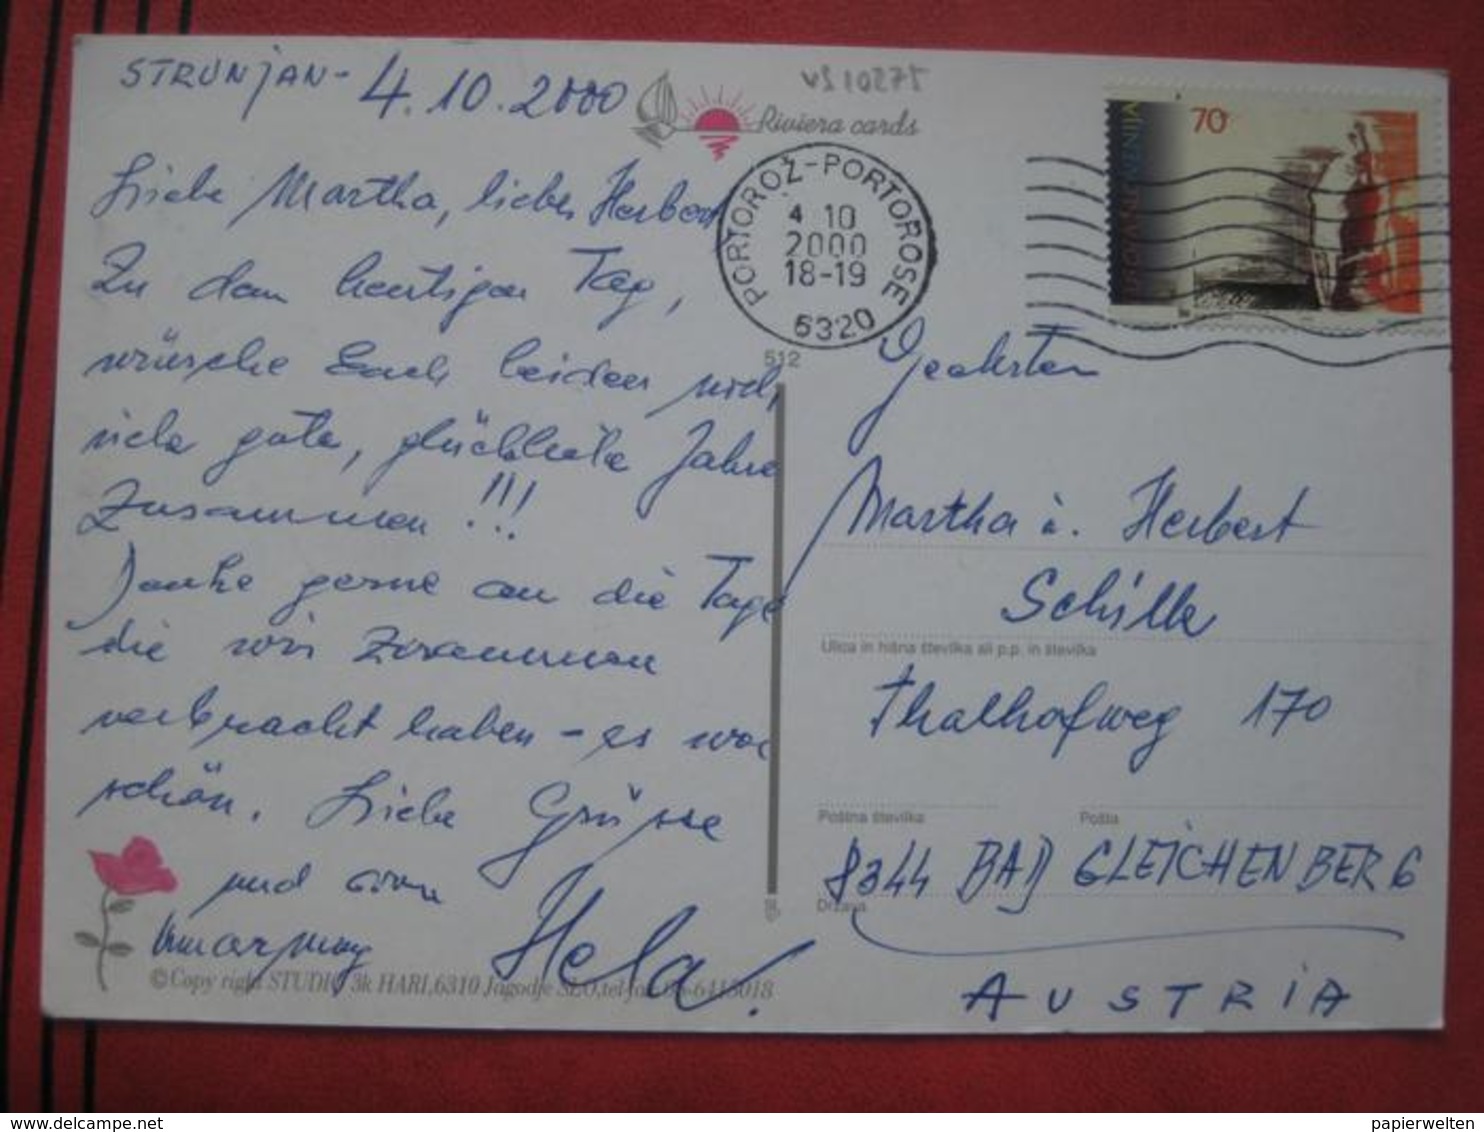 STRUNJAN - 4.10.2000
Riviera cards
Liebe Martha, lieber Herbert
Zu dem heutigen Tag,
wünsche Euch beiden noch
viele gute, glückliche Jahre
Zusammen!!!
Danke gerne an die Tage
die wir zusammen
verbracht haben - es war
schön. Liebe Grüsse
und eine
Umarmung Hela.
© Copy right STUDIO 3k HARI, 6310 Jagodje SLO, tel-fax
PORTOROŽ-PORTOROSE
4 10
2000
18-19
6320
70
SLOVENIJA
512
Geehrten
Martha u. Herbert
Schille
Ulica in hišna številka ali p.p. in številka
Thalhofweg 170
Poštna številka Pošta
8344 BAD GLEICHENBERG
Država
AUSTRIA
delcampe.net
papierwelten